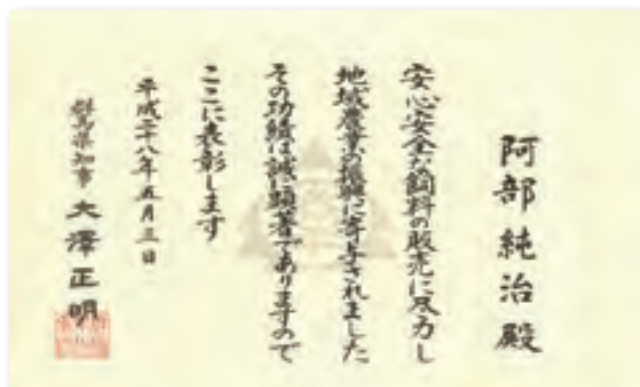 阿部純治殿
安心安全な飼料の販売に尽力し
地域農業の振興に寄与されました
その功績は誠に顕著でありますので
ここに表彰します
平成二十八年五月三日
群馬県知事 大澤正明